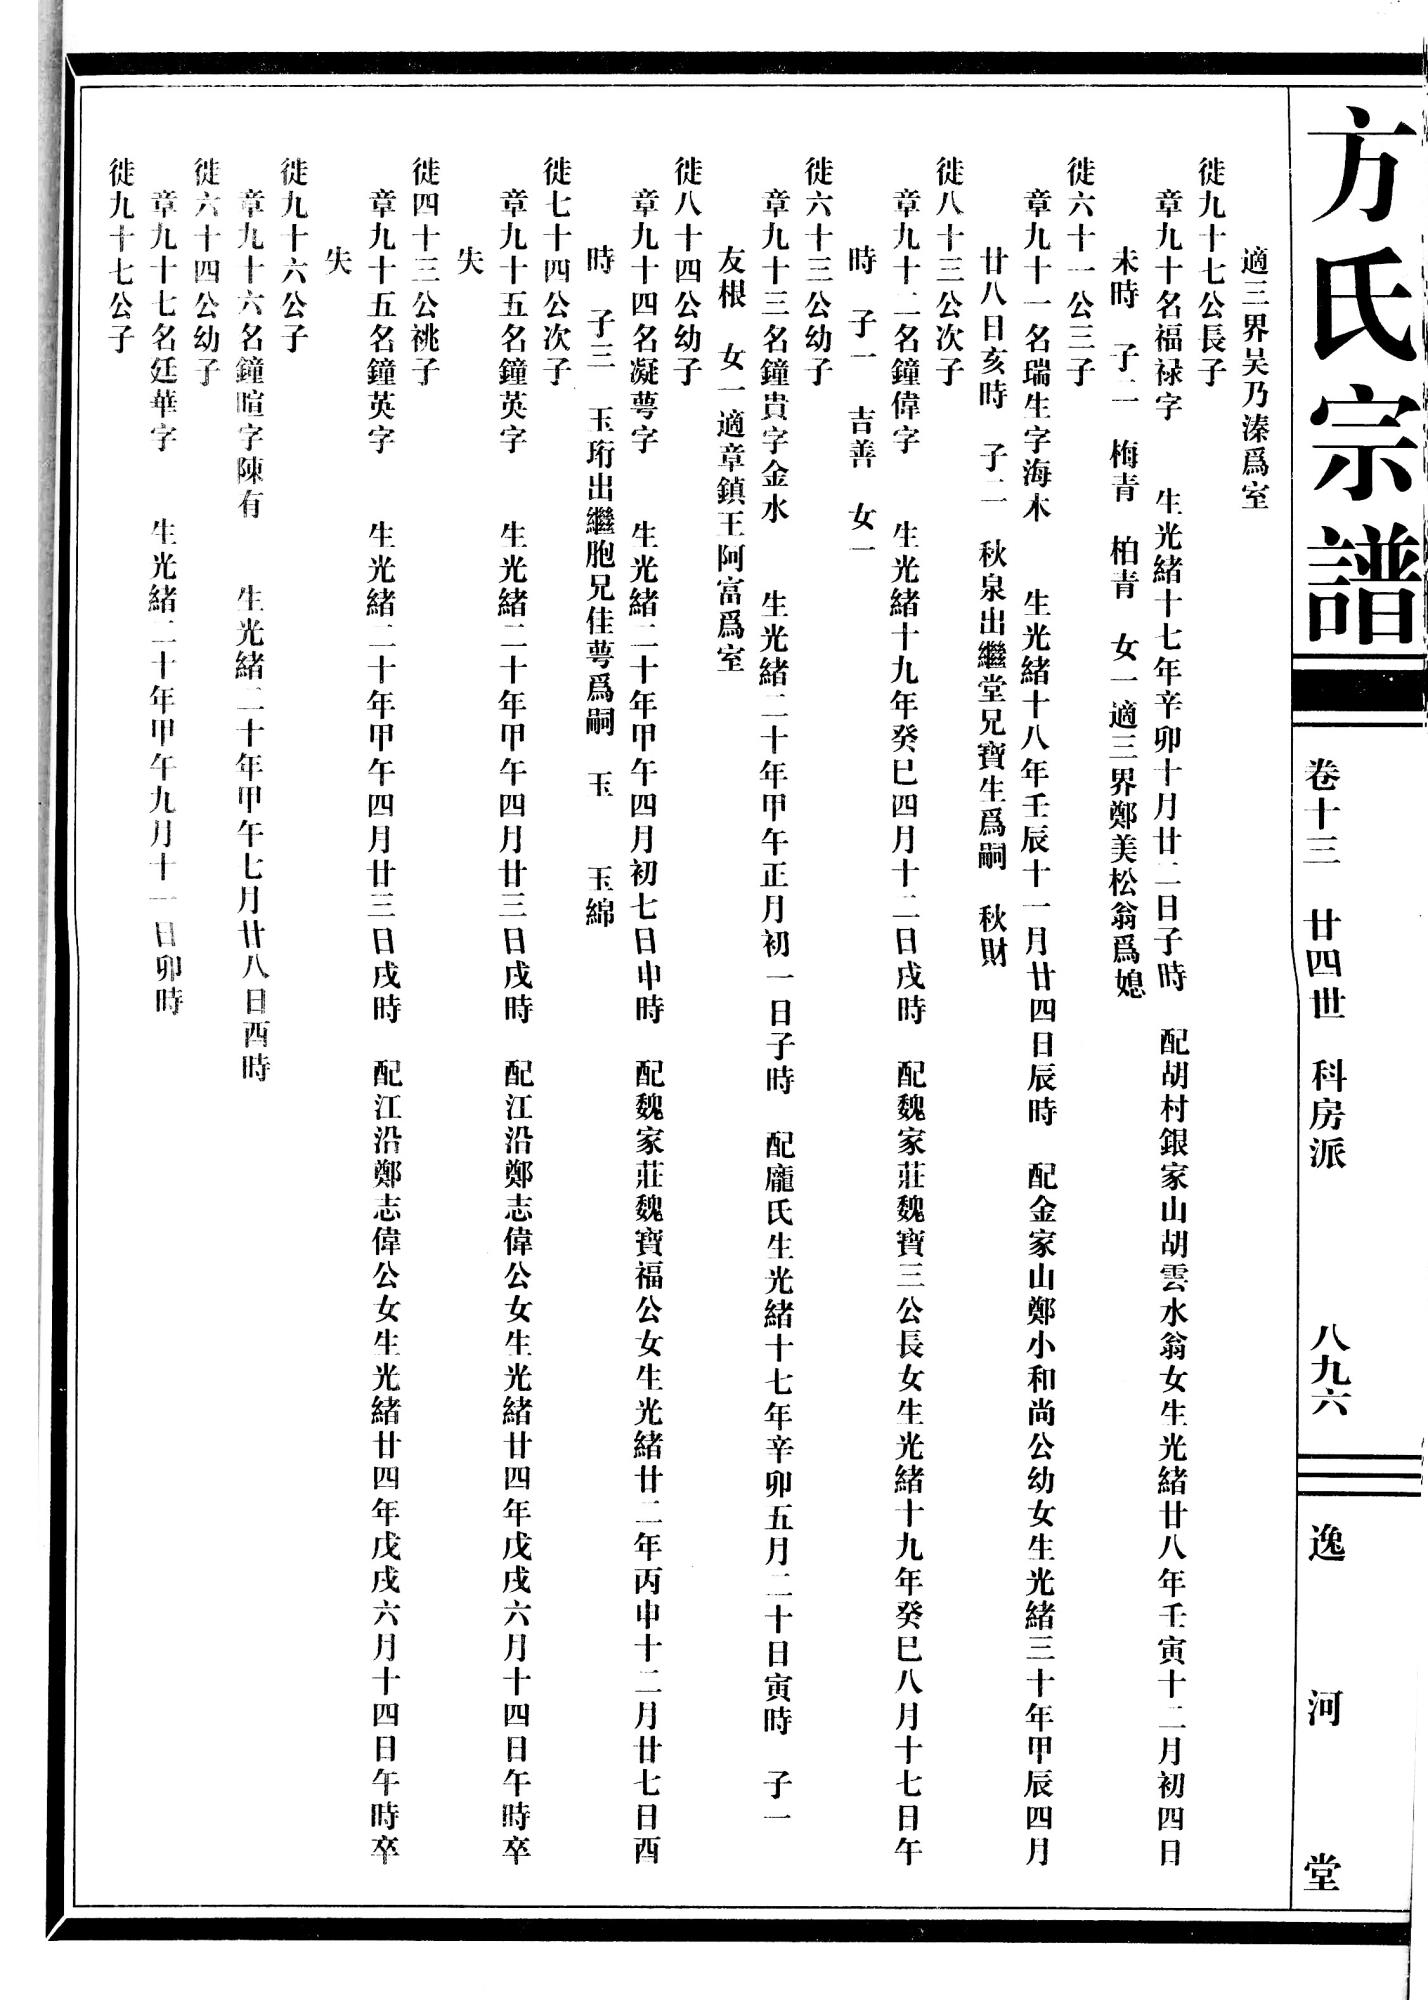 方氏宗譜
卷十三　廿四世　科房派　八九六
逸河堂
適三界吴乃溱爲室
徙九十七公長子
章九十名福禄字　生光緒十七年辛卯十月廿二日子時　配胡村銀家山胡雲水翁女生光緒廿八年壬寅十二月初四日
未時　子二　梅青　柏青　女一適三界鄭美松翁爲媳
徙六十一公三子
章九十一名瑞生字海木　生光緒十八年壬辰十一月廿四日辰時　配金家山鄭小和尚公幼女生光緒三十年甲辰四月
廿八日亥時　子二　秋泉出繼堂兄寶生爲嗣　秋財
徙八十三公次子
章九十二名鐘偉字　生光緒十九年癸巳四月十二日戌時　配魏家莊魏寶三公長女生光緒十九年癸巳八月十七日午
時　子一　吉善　女一
徙六十三公幼子
章九十三名鐘貴字金水　生光緒二十年甲午正月初一日子時　配龐氏生光緒十七年辛卯五月二十日寅時　子一
友根　女一適章鎮王阿富爲室
徙八十四公幼子
章九十四名凝萼字　生光緒二十年甲午四月初七日申時　配魏家莊魏寶福公女生光緒廿二年丙申十二月廿七日酉
時　子三　玉珩出繼胞兄佳萼爲嗣　玉　玉綿
徙七十四公次子
章九十五名鐘英字　生光緒二十年甲午四月廿三日戌時　配江沿鄭志偉公女生光緒廿四年戊戌六月十四日午時卒
失
徙四十三公祧子
章九十五名鐘英字　生光緒二十年甲午四月廿三日戌時　配江沿鄭志偉公女生光緒廿四年戊戌六月十四日午時卒
失
徙九十六公子
章九十六名鐘暄字陳有　生光緒二十年甲午七月廿八日酉時
徙六十四公幼子
章九十七名廷華字　生光緒二十年甲午九月十一日卯時
徙九十七公子